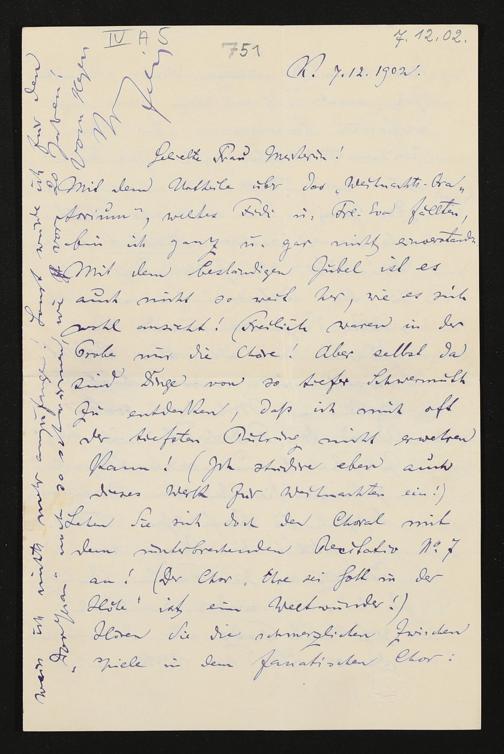 IV A 5
751
7.12.02.
K. 7.12.1902.
Geliebte Frau Meisterin!
Mit dem Urtheile über das „Weihnachts-Ora-
torium", welches Fidi u. Frl. Eva fällten,
bin ich ganz u. gar nicht einverstanden.
Mit dem beständigen Jubel ist es
auch nicht so weit her, wie es sich
wohl ansieht! (Freilich waren in der
Probe nur die Chöre! Aber selbst da
sind Dinge von so tiefer Schwermuth
zu entdecken, daß ich mich oft
der tiefsten Rührung nicht erwehren
kann! (Ich studire eben auch
dieses Werk für Weihnachten ein!)
Sehen Sie sich doch den Choral mit
dem unterbrechenden Recitativ No. 7
an! (Der Chor „Ehre sei Gott in der
Höhe" ist ein Weltwunder!)
Hören Sie die schmerzlichen Zwischen
spiele in dem fanatischen Chor:
weiß ich nichts mehr anzufangen! Sonst würde ich für den
„Don Juan" noch so schwärmen, wie vor
vom